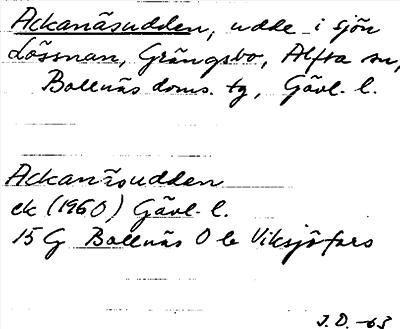 Ackanäsudden, udde i sjön
Lössnan, Grängsbo, Alfta sn,
Bollnäs doms. tg, Gävl. l.
Ackanäsudden
ek (1960) Gävl. l.
15 G Bollnäs O b Viksjöfors
J.D. -63